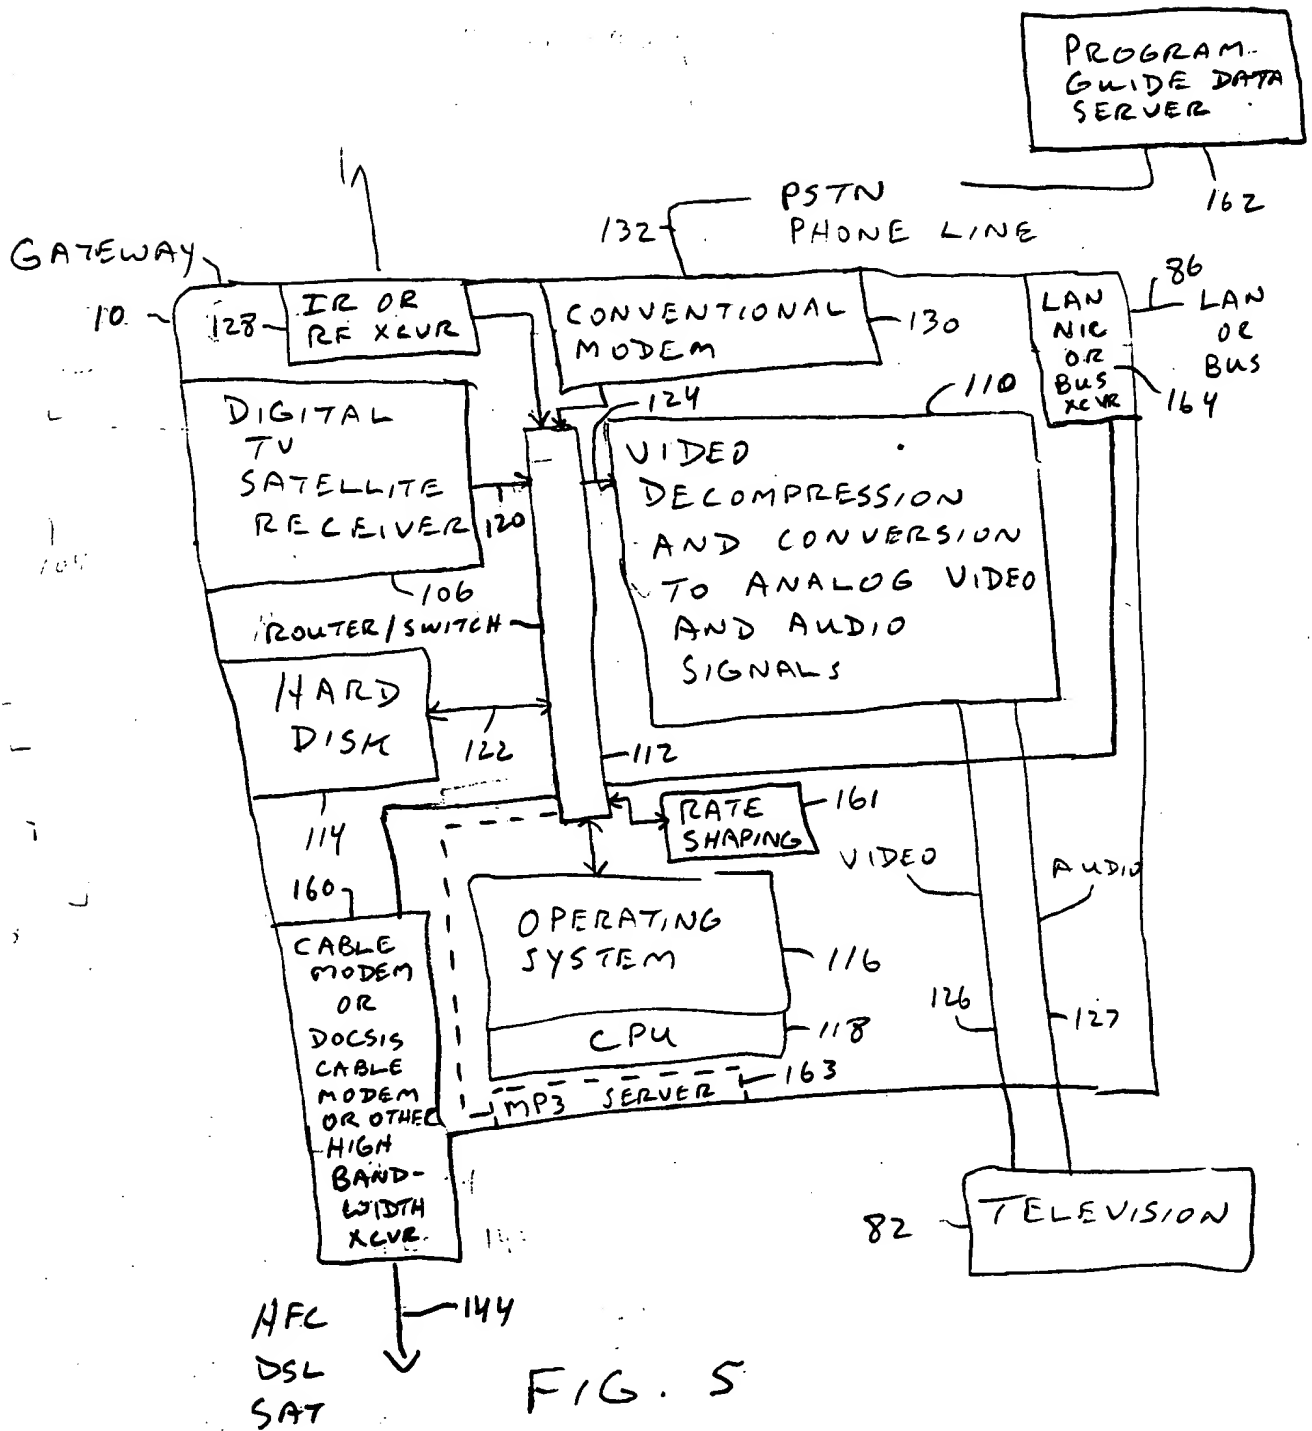 PROGRAM
GUIDE DATA
SERVER
162
PSTN
PHONE LINE
132
GATEWAY
10
128
IR OR
RF XCVR
CONVENTIONAL
MODEM
130
LAN
NIC
OR
BUS
XCVR
86
LAN
OR
BUS
164
DIGITAL
TV
SATELLITE
RECEIVER
120
106
124
110
VIDEO
DECOMPRESSION
AND CONVERSION
TO ANALOG VIDEO
AND AUDIO
SIGNALS
ROUTER/SWITCH
HARD
DISK
122
112
114
RATE
SHAPING
161
VIDEO
AUDIO
160
CABLE
MODEM
OR
DOCSIS
CABLE
MODEM
OR OTHER
HIGH
BAND-
WIDTH
XCVR.
OPERATING
SYSTEM
116
CPU
118
MP3 SERVER
163
126
127
82
TELEVISION
144
HFC
DSL
SAT
FIG. 5